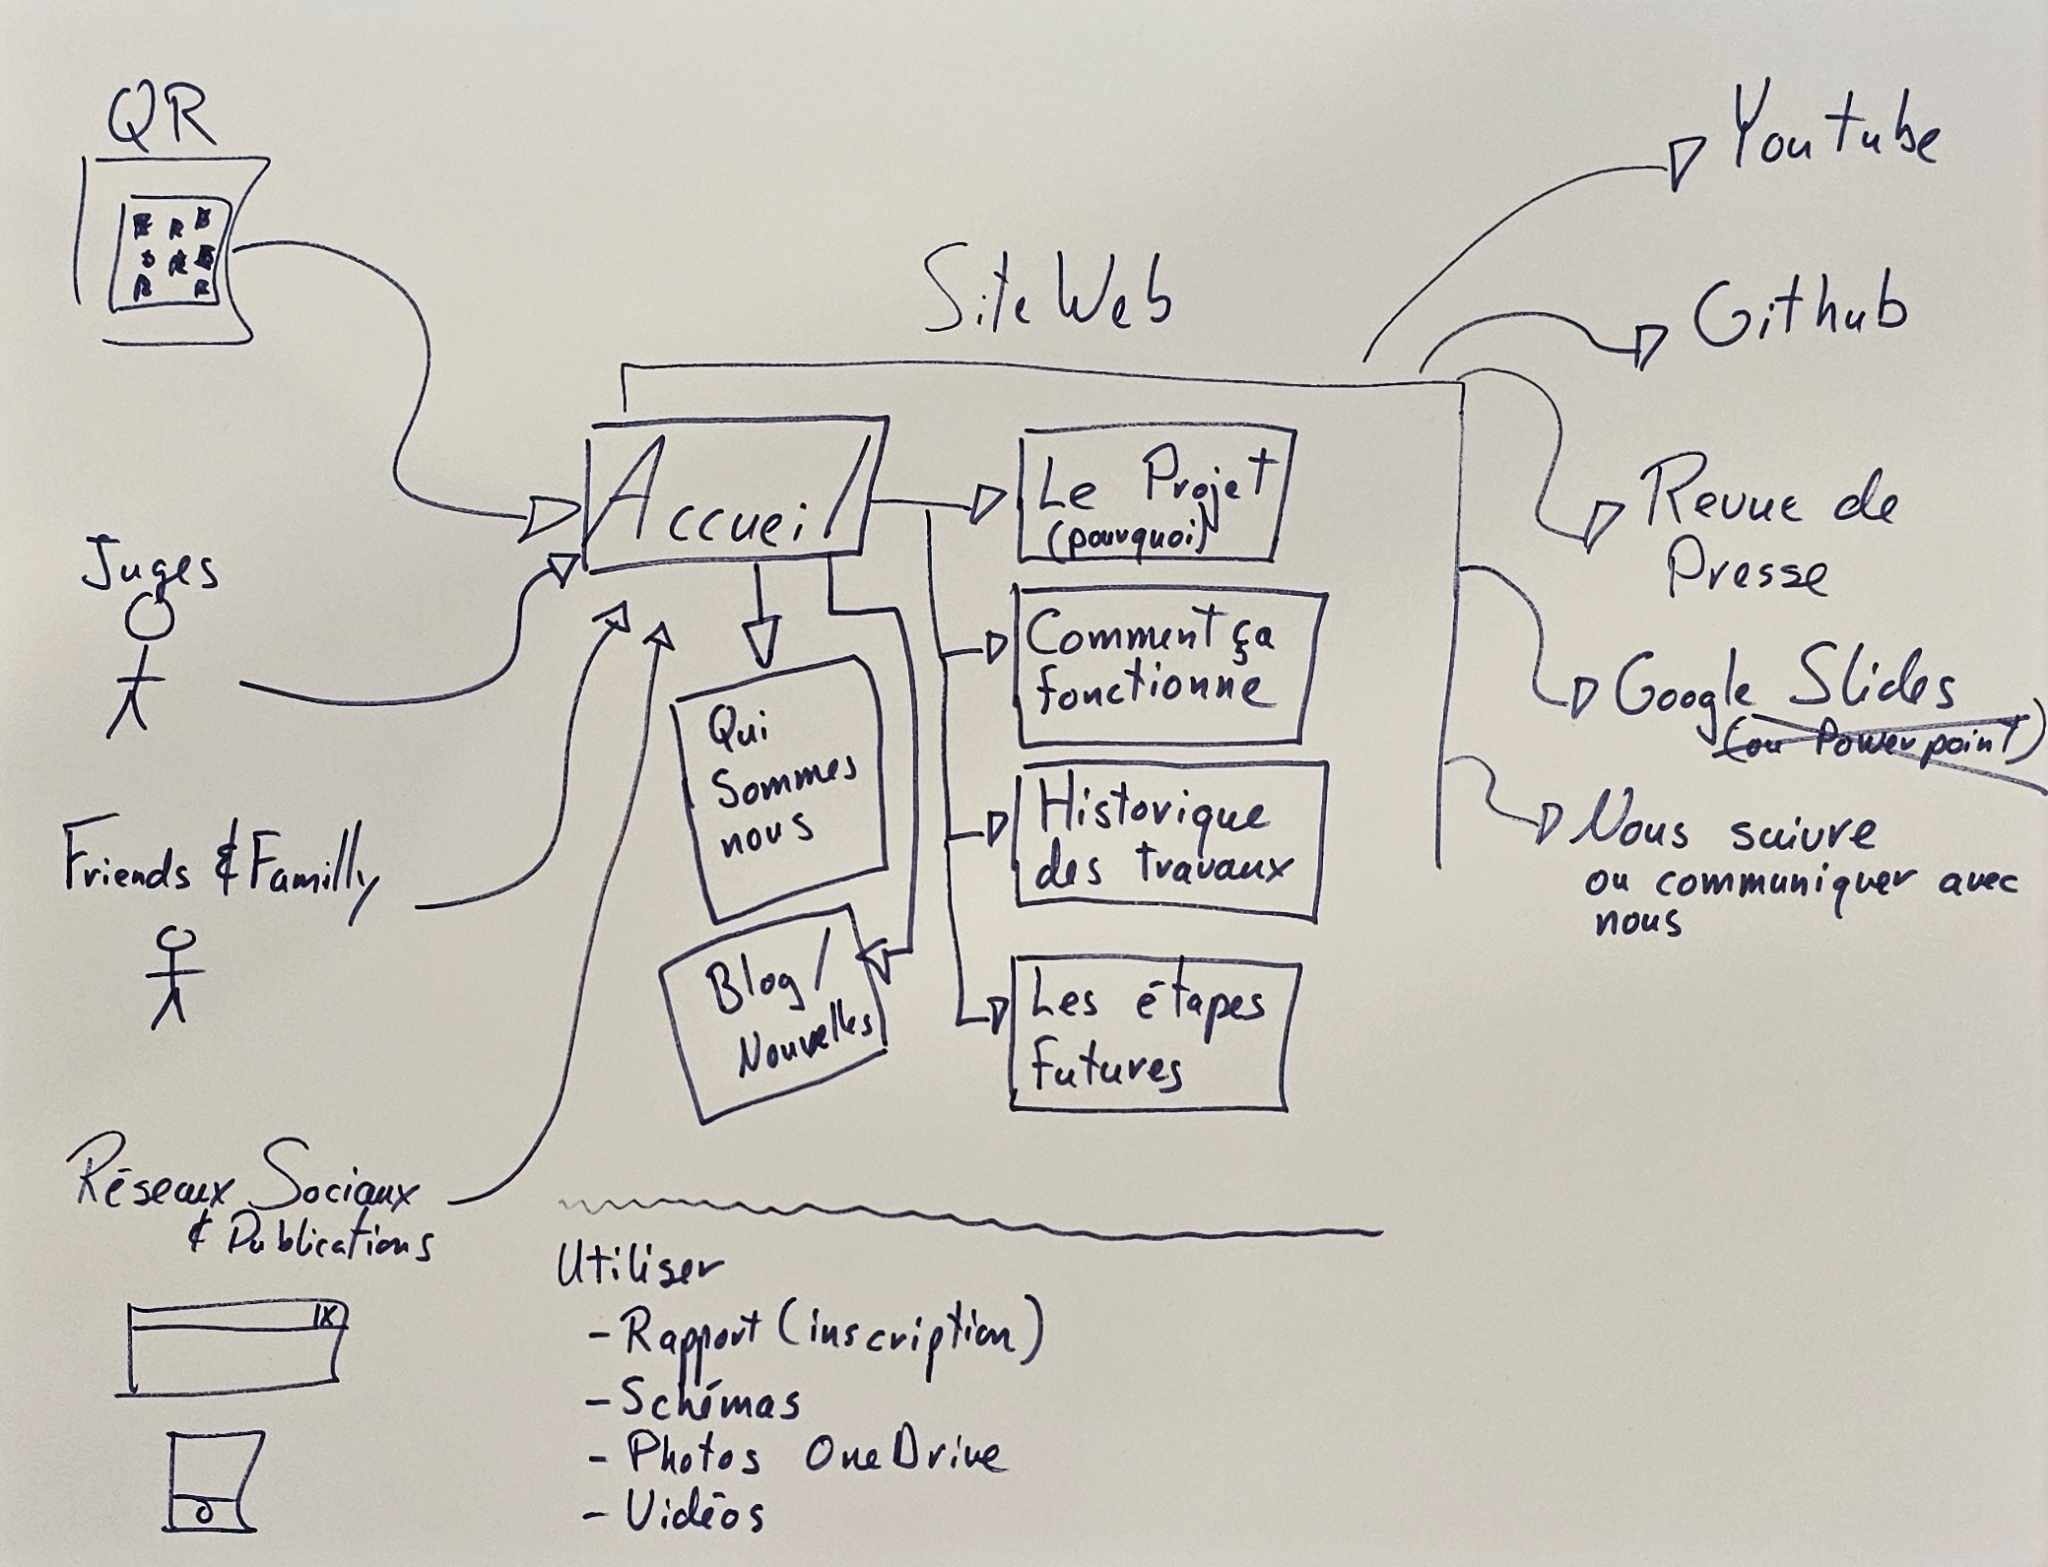 QR
Juges
Friends & Familly
Réseaux Sociaux
& Publications
X
Site Web
Accueil
Qui
Sommes
nous
Blog /
Nouvelles
Le Projet
(pourquoi)
Comment ça
fonctionne
Historique
des travaux
Les étapes
futures
Youtube
Github
Revue de
Presse
Google Slides
(ou Powerpoint)
Nous suivre
ou communiquer avec
nous
Utiliser
- Rapport (inscription)
- Schémas
- Photos OneDrive
- Vidéos